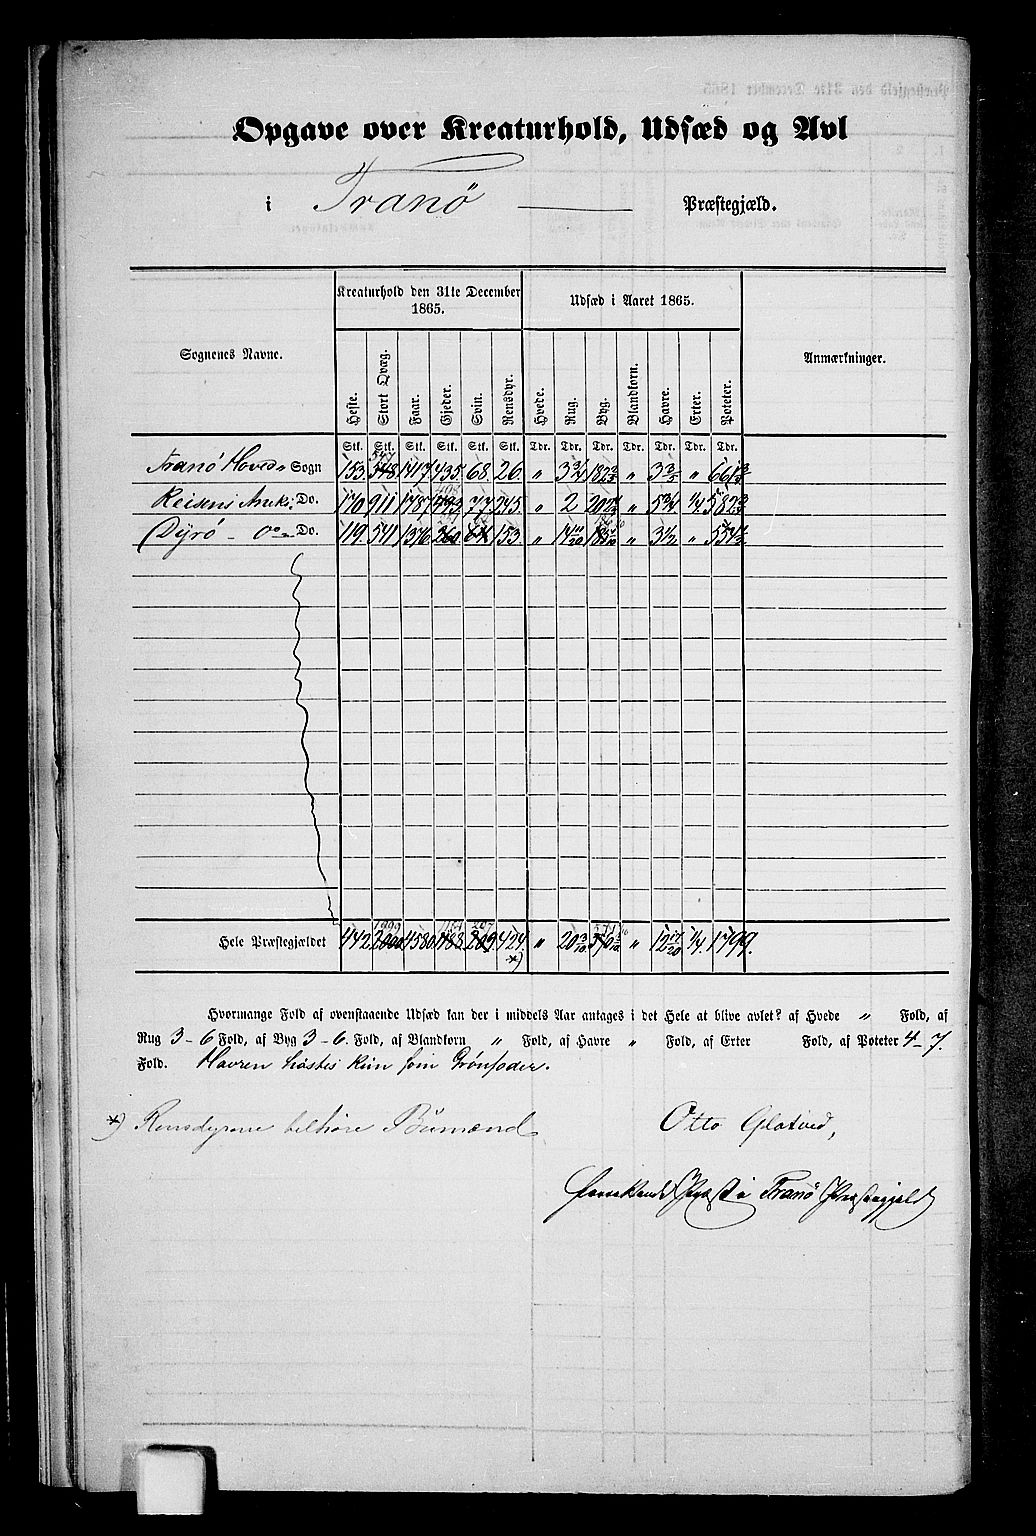 Opgave over Kreaturhold, Udsæd og Avl
i Tranø Præstegjæld.
Sognenes Navne. Kreaturhold den 31te December 1865. Udsæd i Aaret 1865. Anmærkninger.
Heste. Stort Qvæg. Faar. Gjeder. Svin. Rensdyr. Hvede. Rug. Byg. Blandkorn. Havre. Erter. Poteter.
Stk. Stk. Stk. Stk. Stk. Stk. Tdr. Tdr. Tdr. Tdr. Tdr. Tdr. Tdr.
547
Tranø Hoved Sogn 153. 548 1417 435. 68. 26. " 3 3/4 182 " " 661
Reisens Do. 170 911 1787 77 245. " 2 202 " 5 3/4 1/4 582
Dyrø Do. 119. 541 1376 260 64 153. " " 3 1/2 " 554 1/2
1999 207
Hele Præstegjældet 442 2000 4580 209 424. " 20 3/10 " 12 17/20 1/4. 1799.
*)
Hvormange Fold af ovenstaaende Udsæd kan der i middels Aar antages i det Hele at blive avlet? af Hvede " Fold, af
Rug 3-6 Fold, af Byg 3-6. Fold, af Blandkorn " Fold, af Havre " Fold, af Erter Fold, af Poteter 4-7.
Fold. Havren høstes kun som Grønfoder.
*) Rensdyrene tilhøre Bumænd Otto Glatved,
Præst i Tranø Præstegjeld